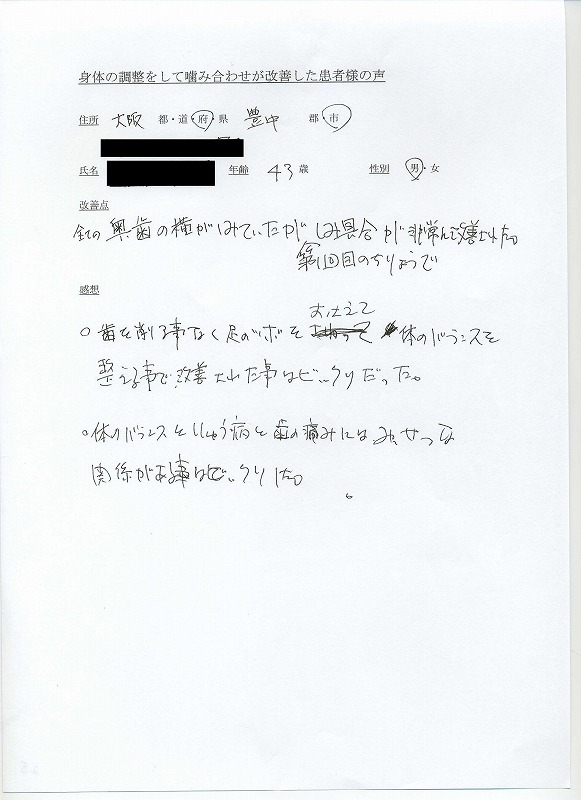 身体の調整をして噛み合わせが改善した患者様の声
住所 大阪 都・道・府・県 豊中 郡・市
氏名 年齢 43歳 性別 男・女
改善点
奥歯の横がしみていたが しみ具合が非常に改善された。
第1回目のちりょうで
感想
おさえて
○歯を削る事なく足のツボを 体のバランスを
整える事で改善された事はビックリだった。
○体のバランスとししゅう病と歯の痛みにはみっせつな
関係がある事はビックリした。